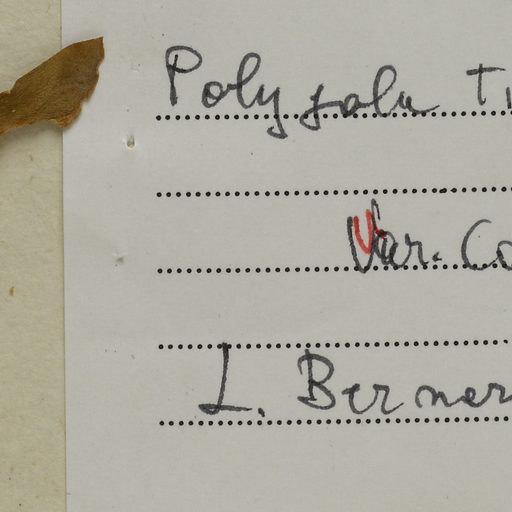 Polygala Ti
Var. Co
L. Berner